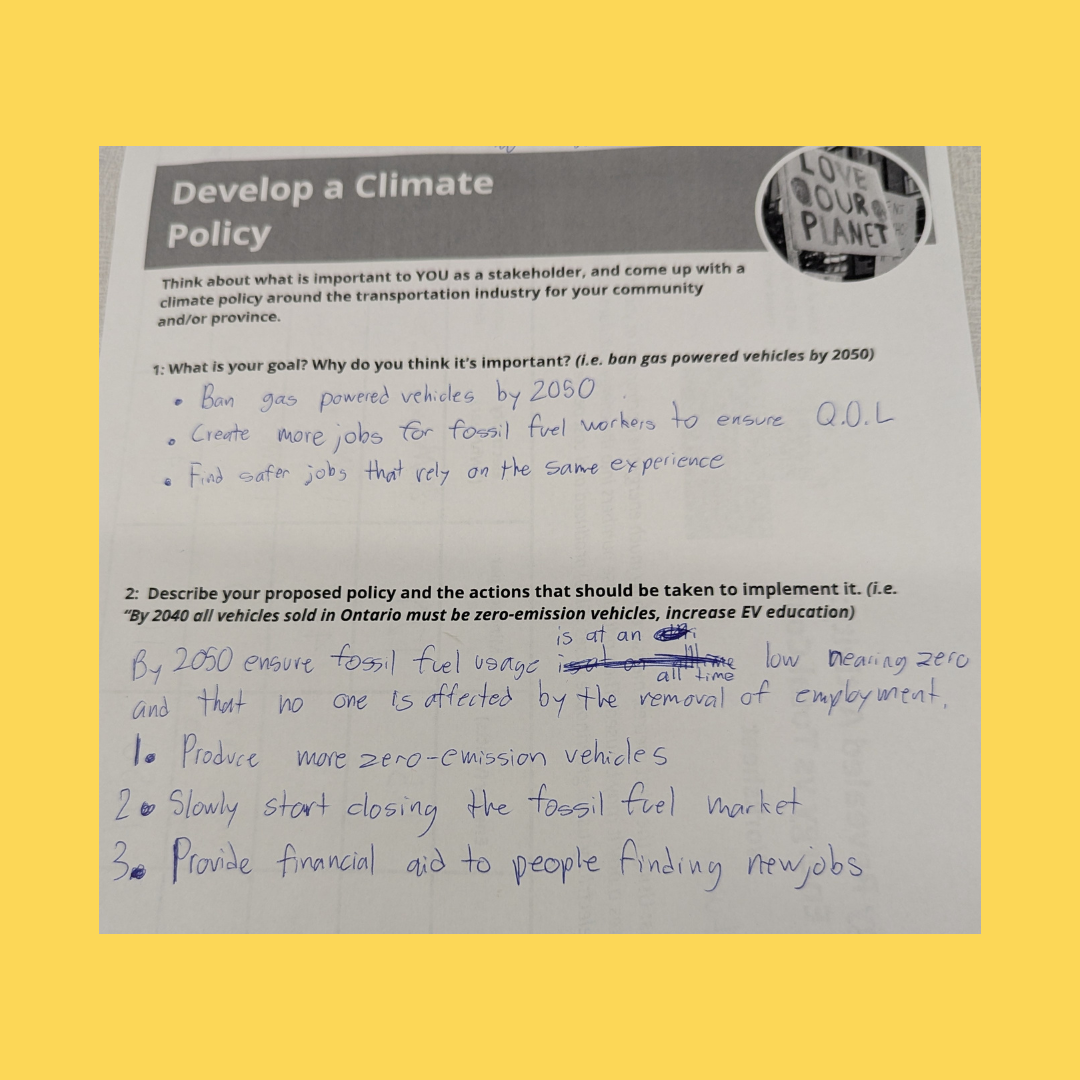 Develop a Climate
Policy
LOVE
OUR
PLANET
Think about what is important to YOU as a stakeholder, and come up with a
climate policy around the transportation industry for your community
and/or province.
1: What is your goal? Why do you think it's important? (i.e. ban gas powered vehicles by 2050)
• Ban gas powered vehicles by 2050
• Create more jobs for fossil fuel workers to ensure Q.O.L
• Find safer jobs that rely on the same experience
2: Describe your proposed policy and the actions that should be taken to implement it. (i.e.
"By 2040 all vehicles sold in Ontario must be zero-emission vehicles, increase EV education)
is at an
By 2050 ensure fossil fuel usage low nearing zero
all time
and that no one is affected by the removal of employment.
1. Produce more zero-emission vehicles
2. Slowly start closing the fossil fuel market
3. Provide financial aid to people finding new jobs